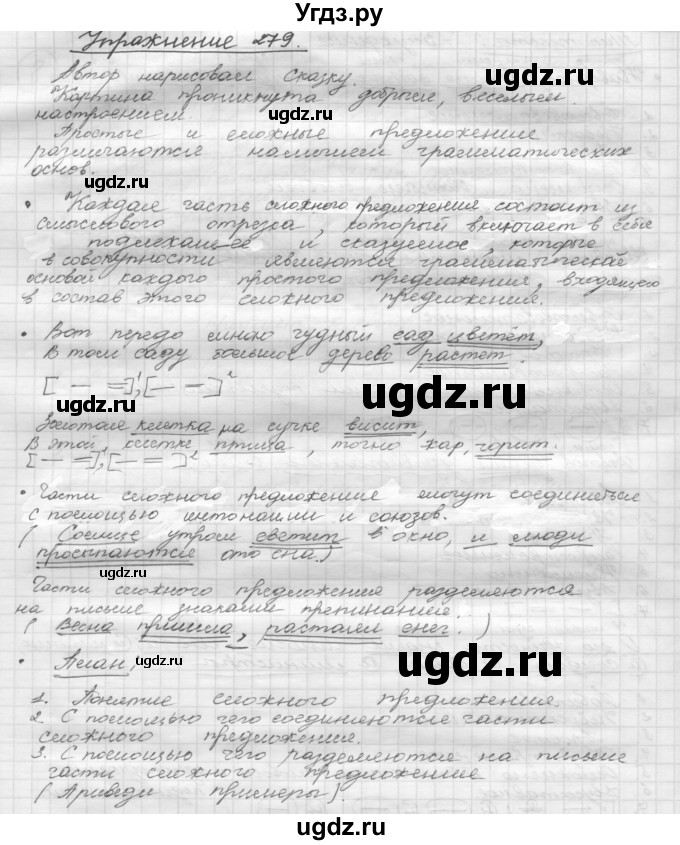 Угдз.ру
Упражнение 279.
Автор нарисовал сказку.
Картина проникнута добрым, весёлым
настроением.
Простые и сложные предложения
различаются наличием грамматических
основ.
• Каждая часть сложного предложения состоит из
смыслового отрезка, который включает в себя
подлежащее и сказуемое, которые
в совокупности являются грамматической
основой каждого простого предложения, входящего
в состав этого сложного предложения.
• Вот передо мною чудный сад цветёт,
В том саду большое дерево растёт.
[— =]¹, [— —]²
Золотая клетка на сучке висит,
В этой клетке птица, точно жар, горит.
[— =]¹, [— =]²
• Части сложного предложения могут соединяться
с помощью интонации и союзов.
(Солнце утром светит в окно, и люди
просыпаются ото сна.)
Части сложного предложения разделяются
на письме знаками препинания.
(Весна пришла, растаял снег.)
• План.
1. Понятие сложного предложения.
2. С помощью чего соединяются части
сложного предложения.
3. С помощью чего разделяются на письме
части сложного предложения
(Приведи примеры).
ugdz.ru
ugdz.ru
ugdz.ru
ugdz.ru
ugdz.ru
ugdz.ru
ugdz.ru
ugdz.ru
ugdz.ru
ugdz.ru
ugdz.ru
ugdz.ru
ugdz.ru